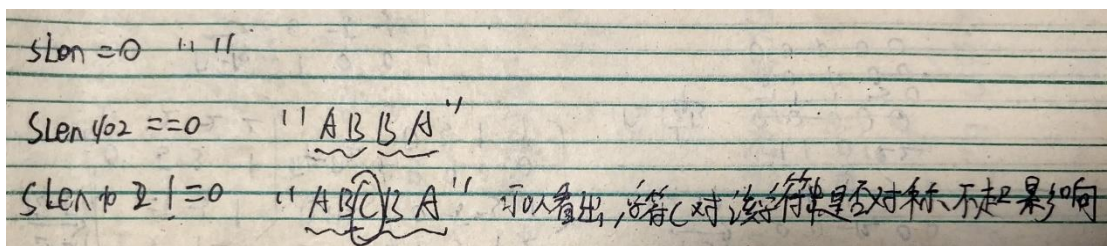 sLen =0 " "
sLen %2 ==0 "ABBA"
sLen % 2 !=0 "ABCBA" 可以看出,字符C对该字符串是否对称、不起影响